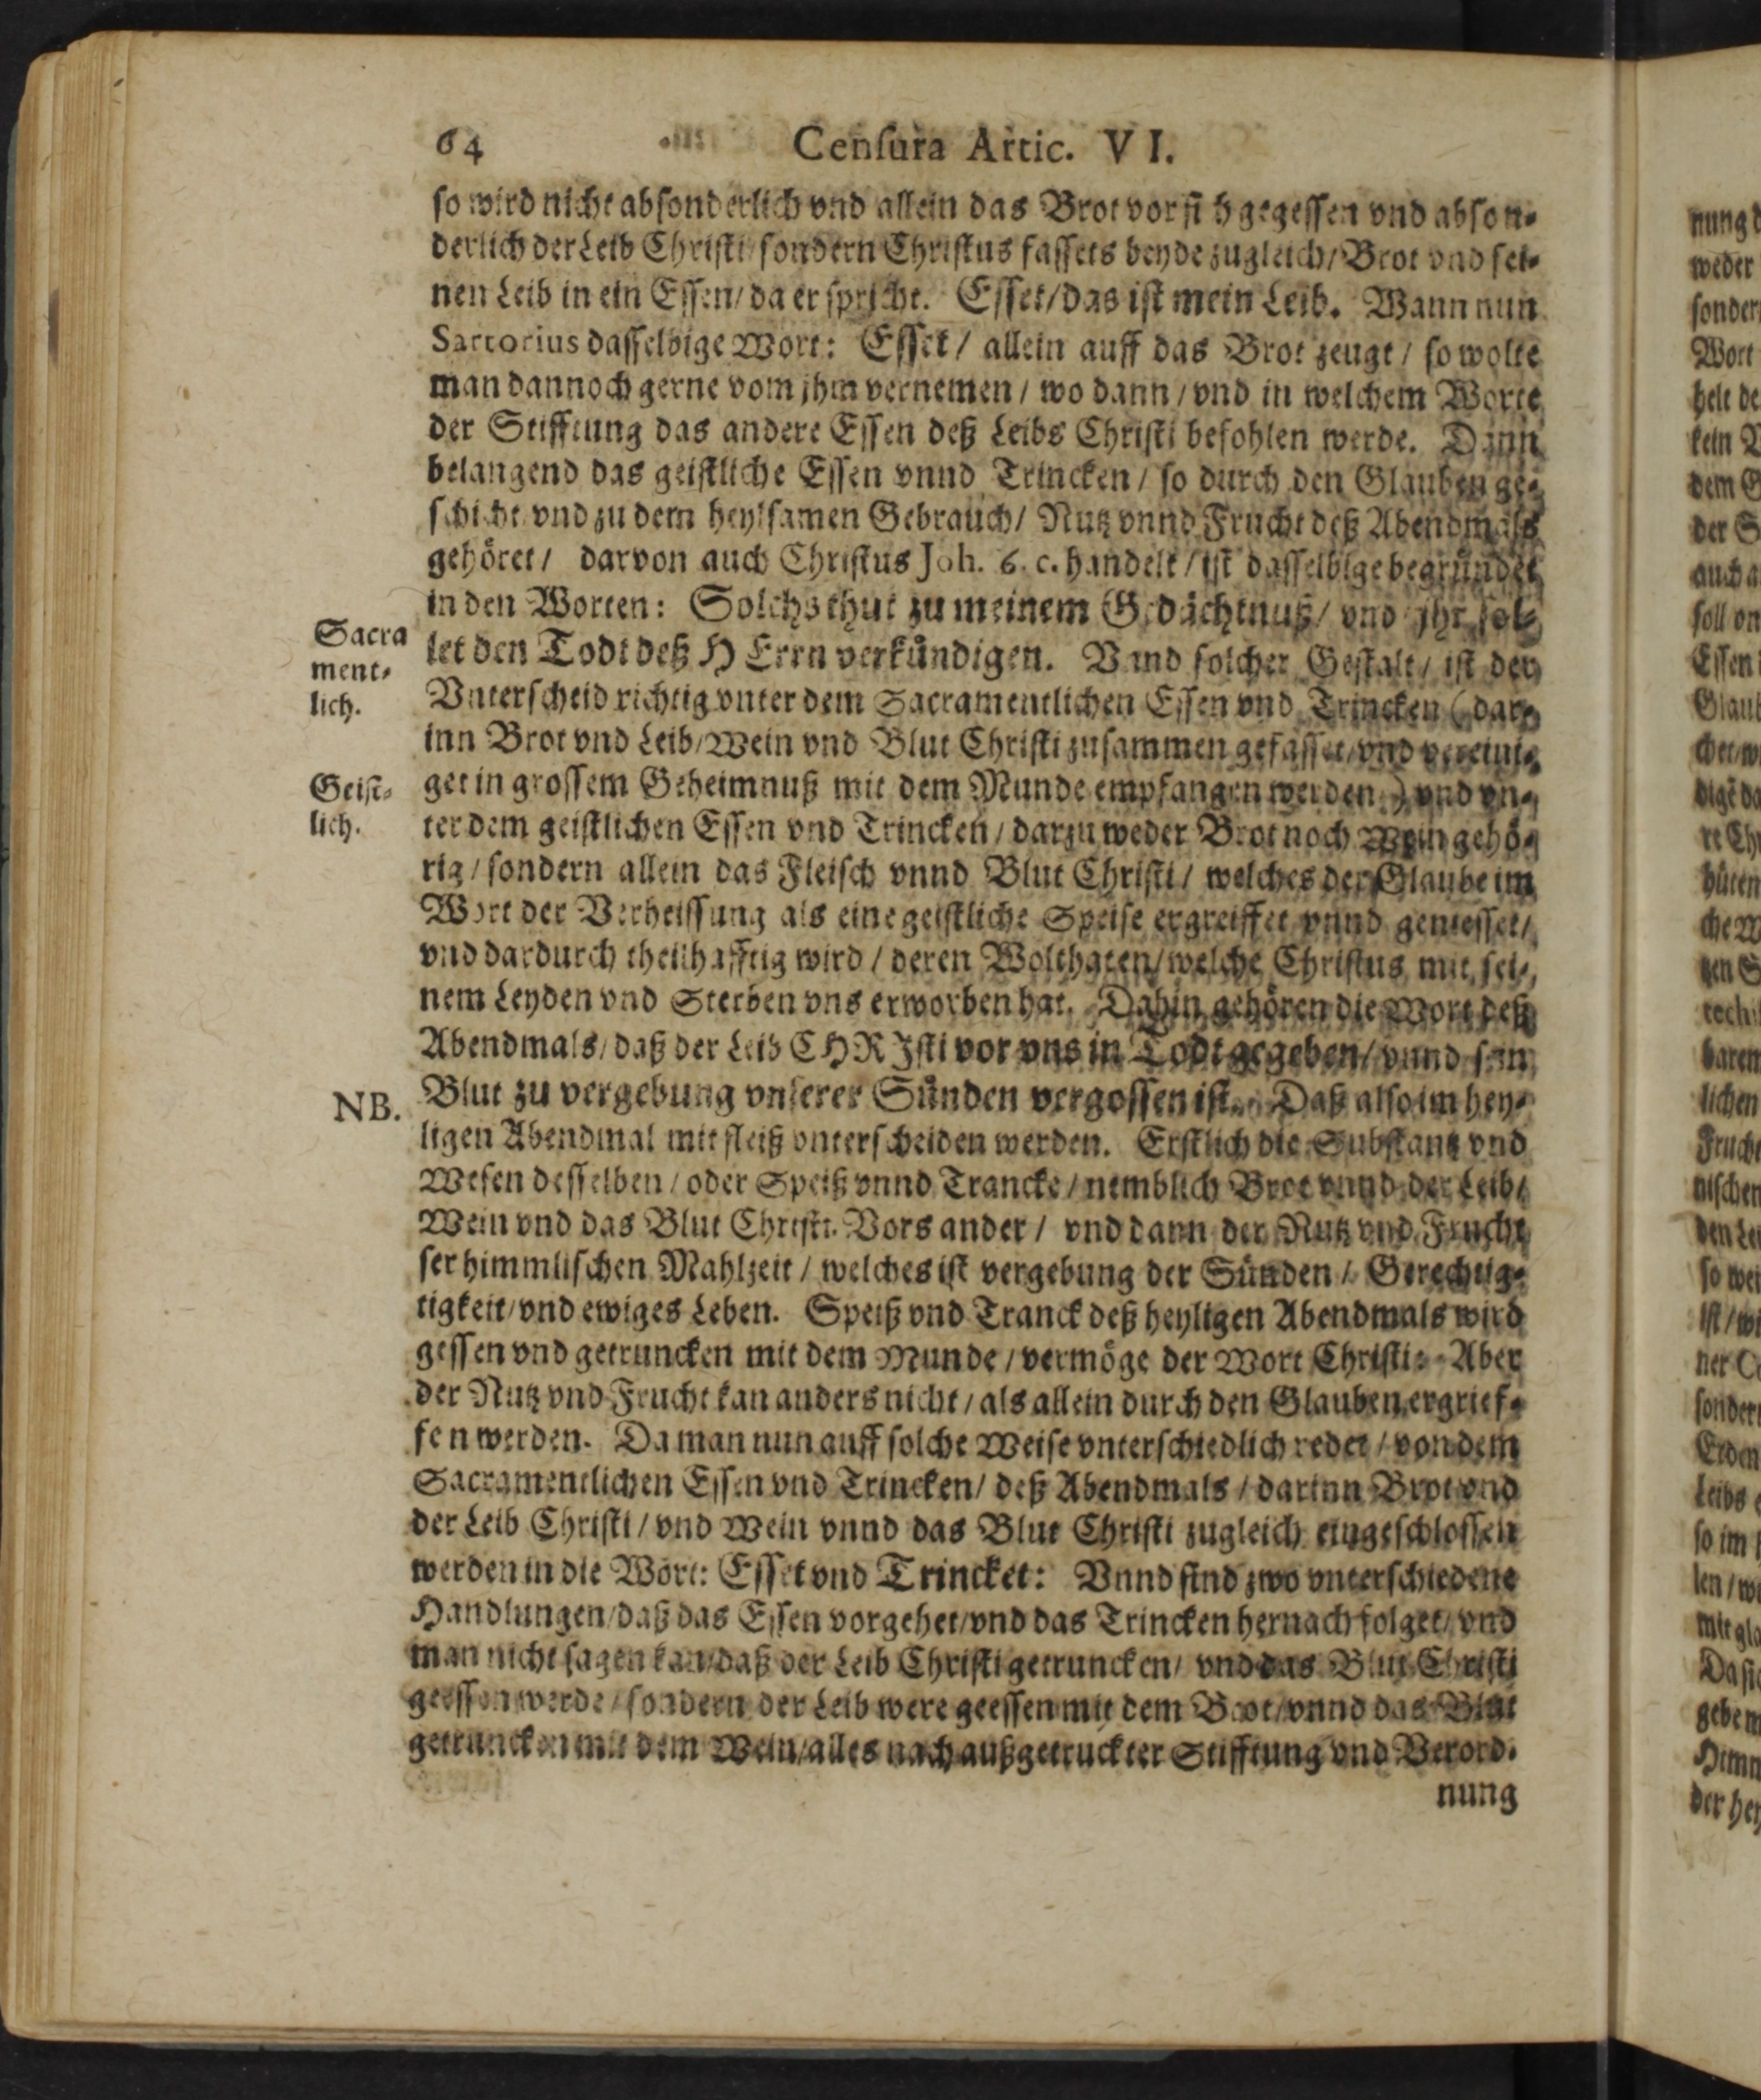 64 Censura Artic. VI.
so wird nicht absonderlich vnd allein das Brot vor sich gegessen vnd abson-
derlich der Leib Christi/ sondern Christus fassets beyde zugleich/ Brot vnd sei-
nen Leib in ein Essen/ da er spricht. Esset/ das ist mein Leib. Wann nun
Sartorius dasselbige Wort: Esset / allein auff das Brot zeugt / so wolte
man dannoch gerne vom jhm vernemen / wo dann / vnd in welchem Worte
der Stifftung das andere Essen deß Leibs Christi befohlen werde. Dann
belangend das geistliche Essen vnnd Trincken / so durch den Glauben ge-
schicht vnd zu dem heylsamen Gebrauch/ Nutz vnnd Frucht deß Abendmals
gehöret / darvon auch Christus Joh. 6. c. handelt / ist dasselbige begründet
in den Worten: Solchs thut zu meinem Gedächtnuß/ vnd jhr sol-
let den Todt deß HErrn verkündigen. Vnnd solcher Gestalt / ist der
Sacra
ment-
lich.
Vnterscheid richtig vnter dem Sacramentlichen Essen vnd Trincken (dar-
inn Brot vnd Leib/ Wein vnd Blut Christi zusammen gefasset/ vnd vereini-
get in grossem Geheimnuß mit dem Munde empfangen werden) vnd vn-
Geist-
lich.
ter dem geistlichen Essen vnd Trincken / darzu weder Brot noch Wein gehö-
rig / sondern allein das Fleisch vnnd Blut Christi / welches der Glaube im
Wort der Verheissung als eine geistliche Speise ergreiffet vnnd geniesset/
vnd dardurch theilhafftig wird / deren Wolthaten/ welche Christus mit sei-
nem Leyden vnd Sterben vns erworben hat. Dahin gehören die Wort deß
Abendmals/ daß der Leib CHRJsti vor vns in Todt gegeben/ vnnd sein
NB.
Blut zu vergebung vnserer Sünden vergossen ist. Daß also im hey-
ligen Abendmal mit fleiß vnterscheiden werden. Erstlich die Substantz vnd
Wesen desselben / oder Speiß vnnd Trancke / nemblich Brot vnnd der Leib/
Wein vnd das Blut Christi. Vors ander / vnd dann der Nutz vnd Frucht
ser himmlischen Mahlzeit / welches ist vergebung der Sünden / Gerechtig-
tigkeit/ vnd ewiges Leben. Speiß vnd Tranck deß heyligen Abendmals wird
gessen vnd getruncken mit dem Munde / vermöge der Wort Christi: Aber
der Nutz vnd Frucht kan anders nicht / als allein durch den Glauben ergrief-
fen werden. Da man nun auff solche Weise vnterschiedlich redet / von dem
Sacramentlichen Essen vnd Trincken/ deß Abendmals / darinn Brot vnd
der Leib Christi / vnd Wein vnnd das Blut Christi zugleich eingeschlossen
werden in die Wort: Esset vnd Trincket: Vnnd sind zwo vnterschiedene
Handlungen/ daß das Essen vorgehet/ vnd das Trincken hernach folget/ vnd
man nicht sagen kan/ daß der Leib Christi getruncken/ vnd das Blut Christi
geessen werde / sondern der Leib were geessen mit dem Brot/ vnnd das Blut
getruncken mit dem Wein/ alles nach außgetruckter Stifftung vnd Verord-
nung